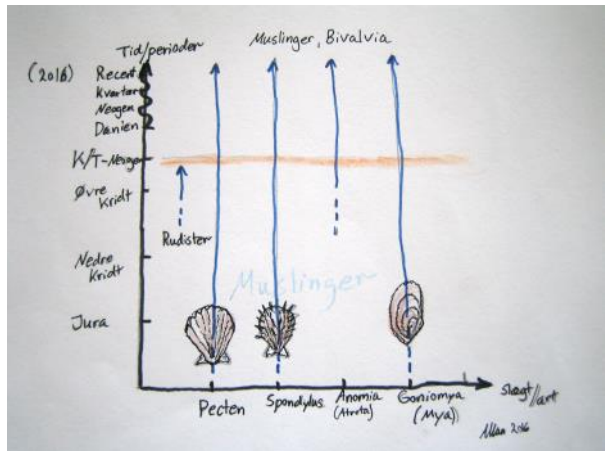 Tid/perioder
Muslinger, Bivalvia
(2016)
Recent
Kvartær
Neogen
Danien
K/T-
Øvre
Kridt
Rudister
Nedre
Kridt
Muslinger
Jura
Pecten
Spondylus
Anomia
Goniomya
(Mya)
slægt/art
Allan 2016